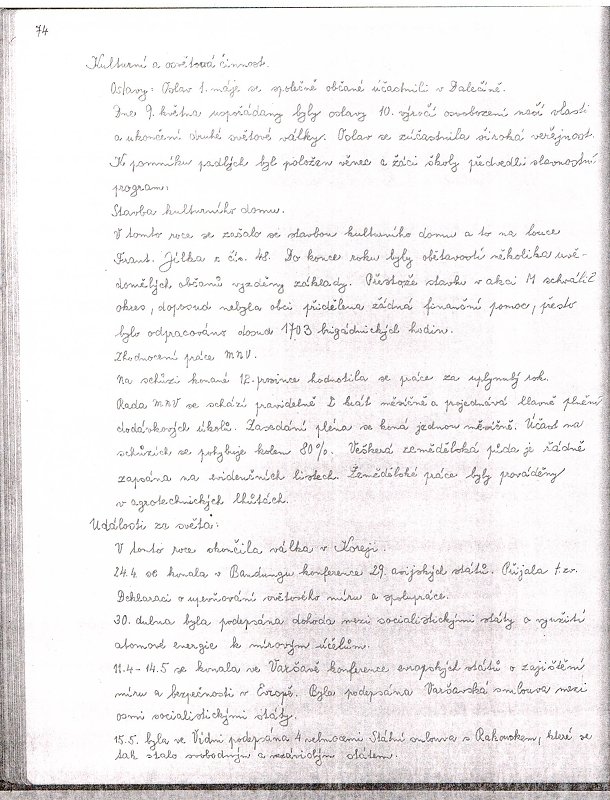 74
Kulturní a osvětová činnost.
Oslavy: Oslav 1. máje se společně občané účastnili v Dalečíně.
Dne 9. května uspořádany byly oslavy 10. výročí osvobození naší vlasti
a ukončení druhé světové války. Oslav se zúčastnila široká veřejnost.
K pomníku padlých byl položen věnec a žáci školy předvedli slavnostní
program.
Stavba kulturního domu.
V tomto roce se začalo se stavbou kulturního domu a to na louce
Frant. Jílka z čís. 48. Do konce roku byly obětavostí několika uvě-
domělých občanů vyzděny základy. Přestože stavbu v akci M schválil
okres, doposud nebyla obci přidělena žádná finanční pomoc, přesto
bylo odpracováno dosud 1703 brigádnických hodin.
Zhodnocení práce MNV.
Na schůzi konané 12. prosince hodnotila se práce za uplynulý rok.
Rada MNV se schází pravidelně 2 krát měsíčně a projednává hlavně plnění
dodávkových úkolů. Zasedání pléna se koná jednou měsíčně. Účast na
schůzích se pohybuje kolem 80%. Veškerá zemědělská půda je řádně
zapsána na evidenčních listech. Zemědělské práce byly prováděny
v agrotechnických lhůtách.
Události ze světa:
V tomto roce skončila válka v Koreji.
24.4. se konala v Bandungu konference 29. asijských států. Přijala t.zv.
Deklaraci o upevňování světového míru a spolupráce.
30. dubna byla podepsána dohoda mezi socialistickými státy o využití
atomové energie k mírovým účelům.
11.4 - 14.5 se konala ve Varšavě konference evropských států o zajištění
míru a bezpečnosti v Evropě. Byla podepsána Varšavská smlouva mezi
osmi socialistickými státy.
15.5. byla ve Vídni podepsána 4 velmocemi Státní smlouva s Rakouskem, které se
tak stalo svobodným a nezávislým státem.